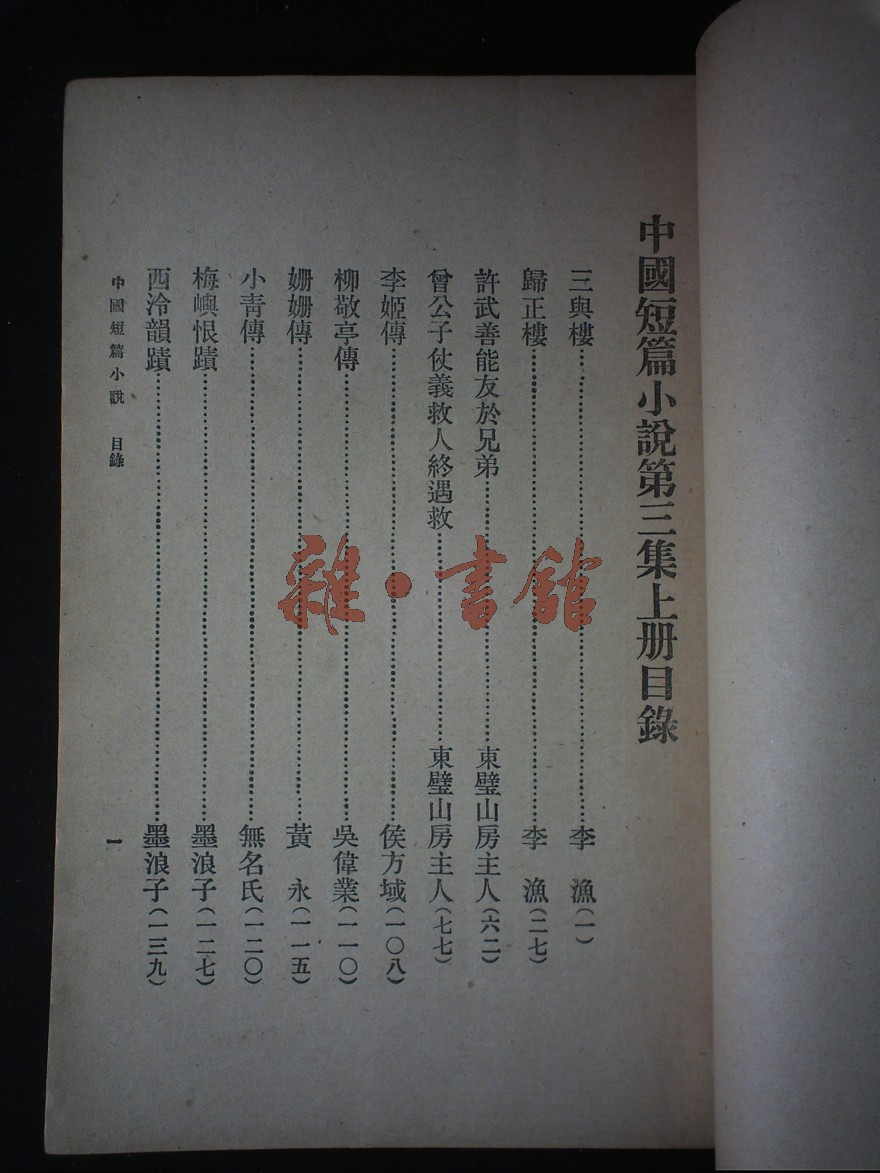 中國短篇小說第三集上册目錄
三與樓……李 漁(一)
歸正樓……李 漁(二七)
許武善能友於兄弟……東璧山房主人(六二)
曾公子仗義救人終遇救……東璧山房主人(七七)
李姬傳……侯方域(一〇八)
柳敬亭傳……吳偉業(一一〇)
姍姍傳……黃 永(一一五)
小靑傳……無名氏(一二〇)
梅嶼恨蹟……墨浪子(一二七)
西泠韻蹟……墨浪子(一三九)
中國短篇小說 目錄
一
雜·書館